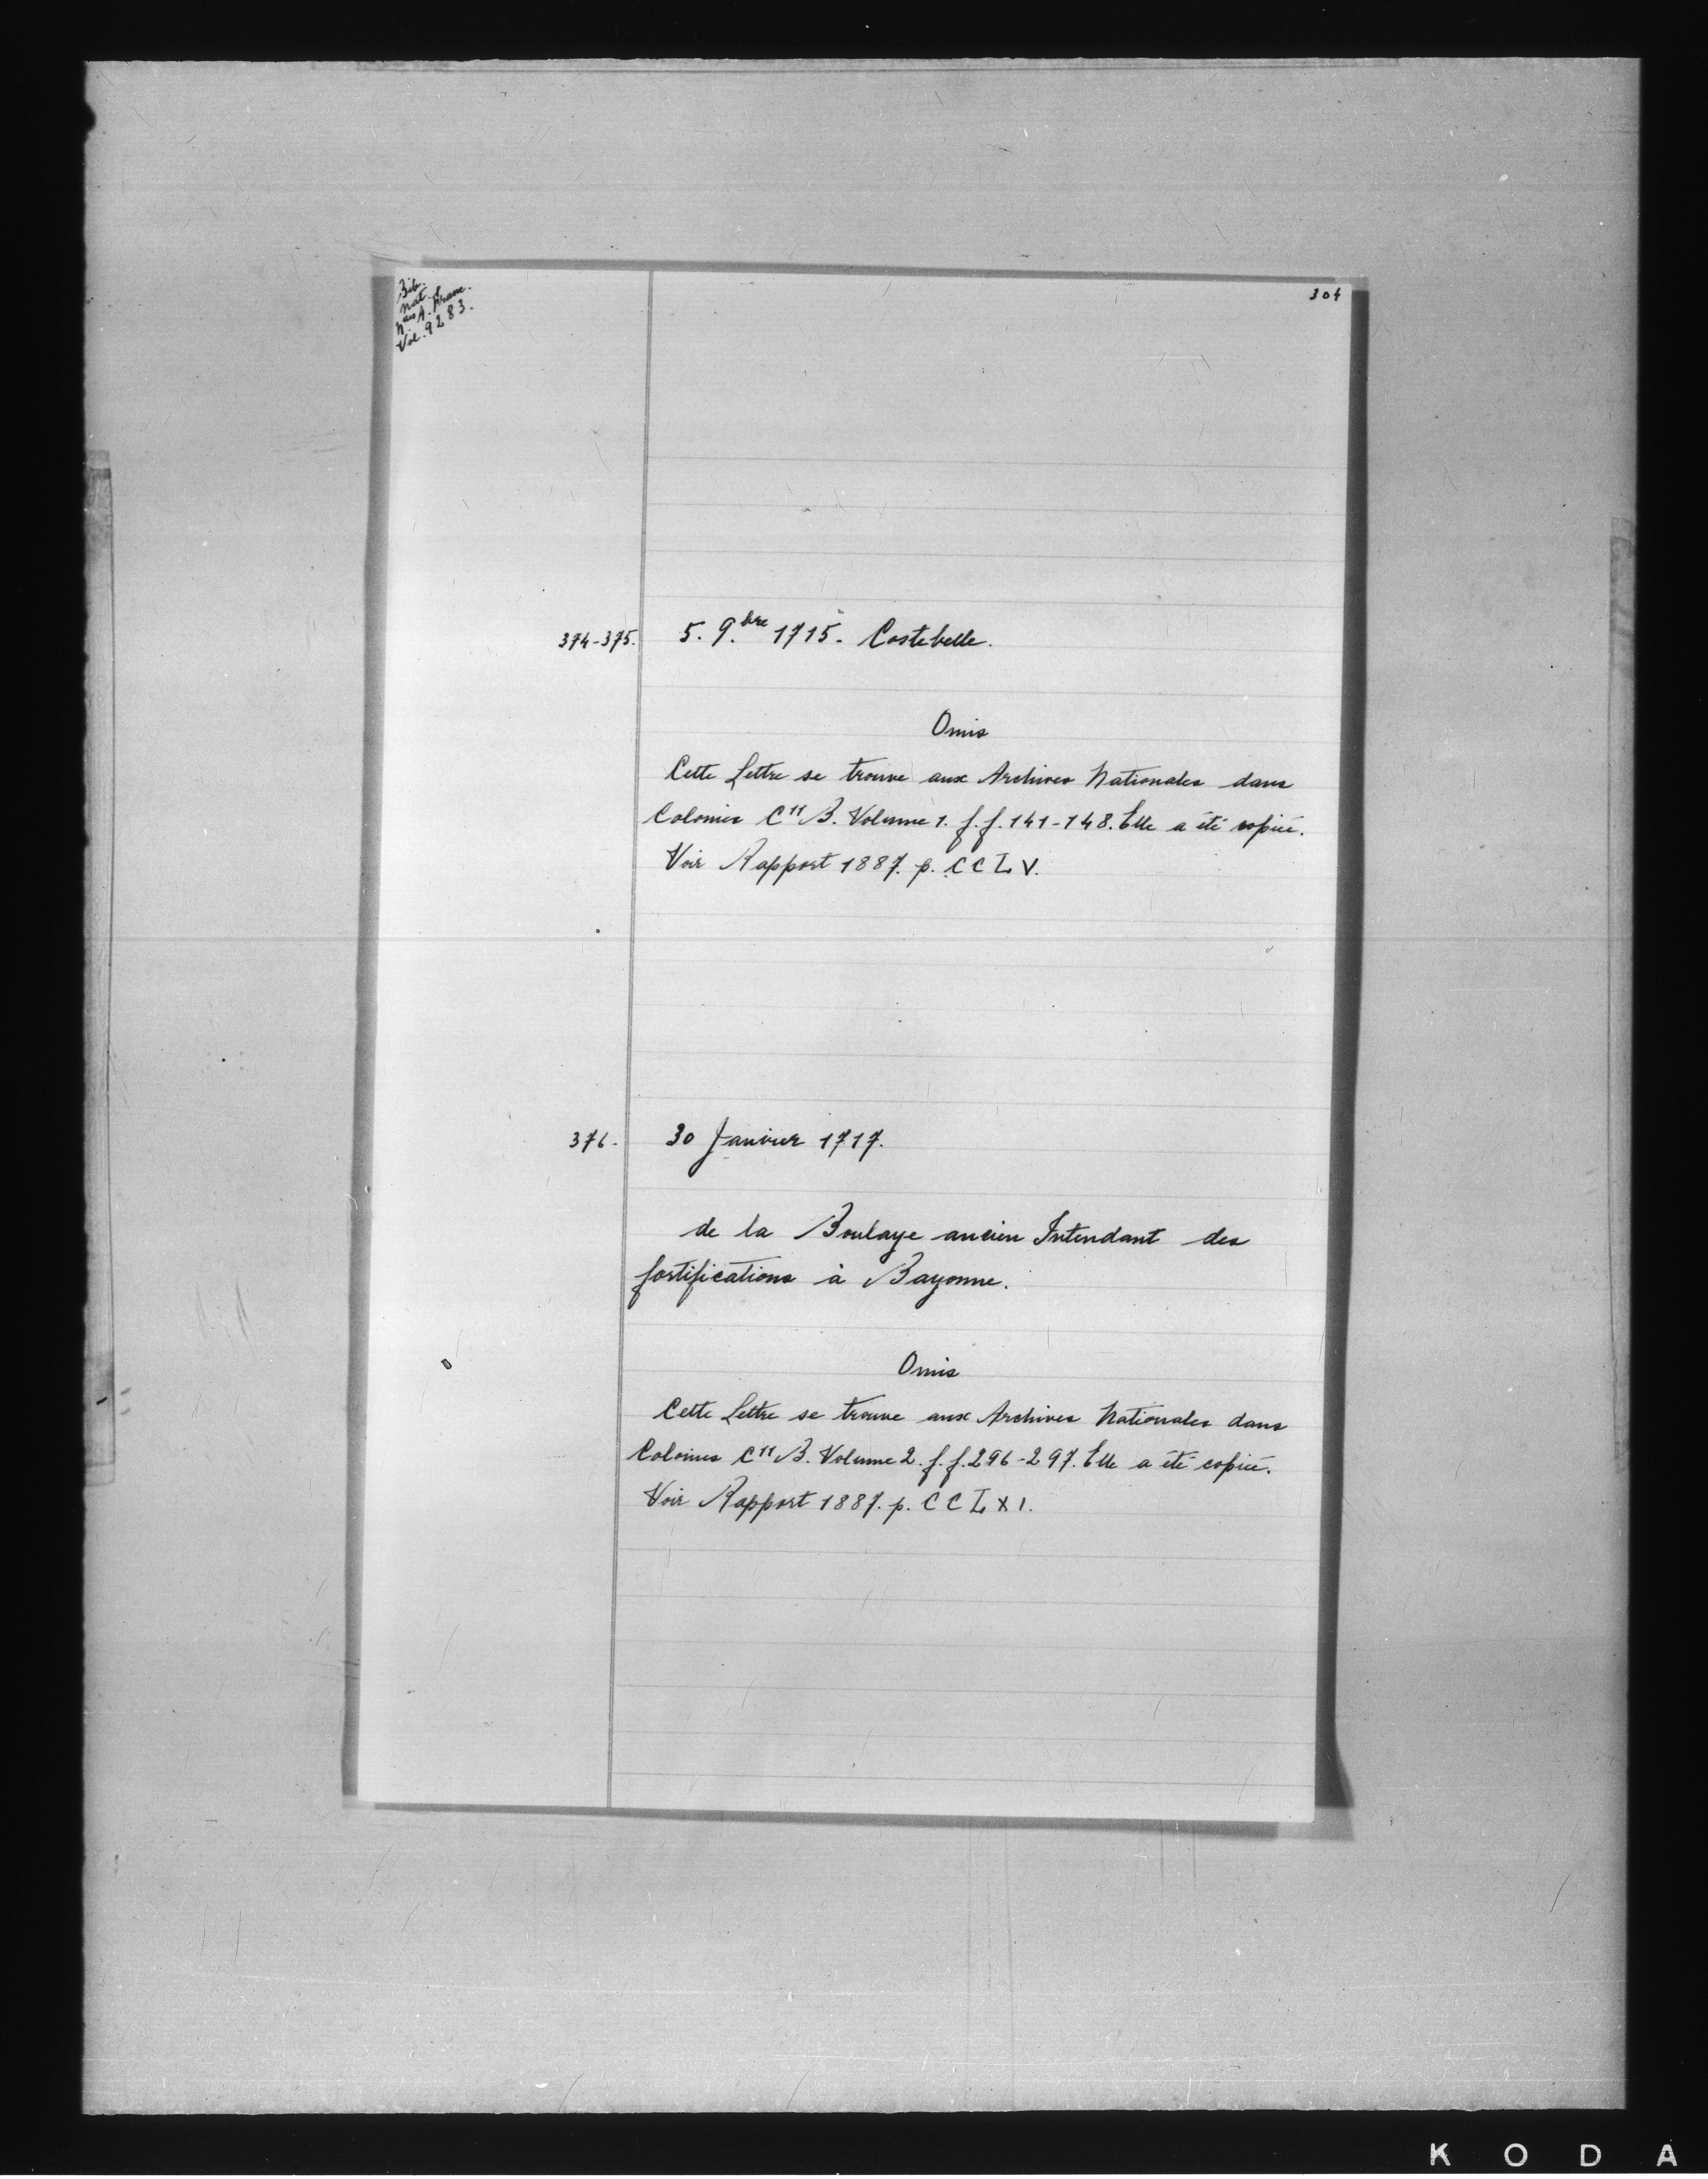 Bib.
nat.le
n.les A. franc.
Vol. 9283.
304
374-375. 5. 9.bre 1715. Costebelle.
Omis
Cette Lettre se trouve aux Archives Nationales dans
Colonies C11 B. Volume 1. f.f. 141-148. Elle a été copiée.
Voir Rapport 1887. p. CCLV.
376. 30 Janvier 1717.
de la Boulaye ancien Intendant des
fortifications à Bayonne.
Omis
Cette Lettre se trouve aux Archives Nationales dans
Colonies C11 B. Volume 2. f.f. 296-297. Elle a été copiée.
Voir Rapport 1887. p. CCLXI.
KODA